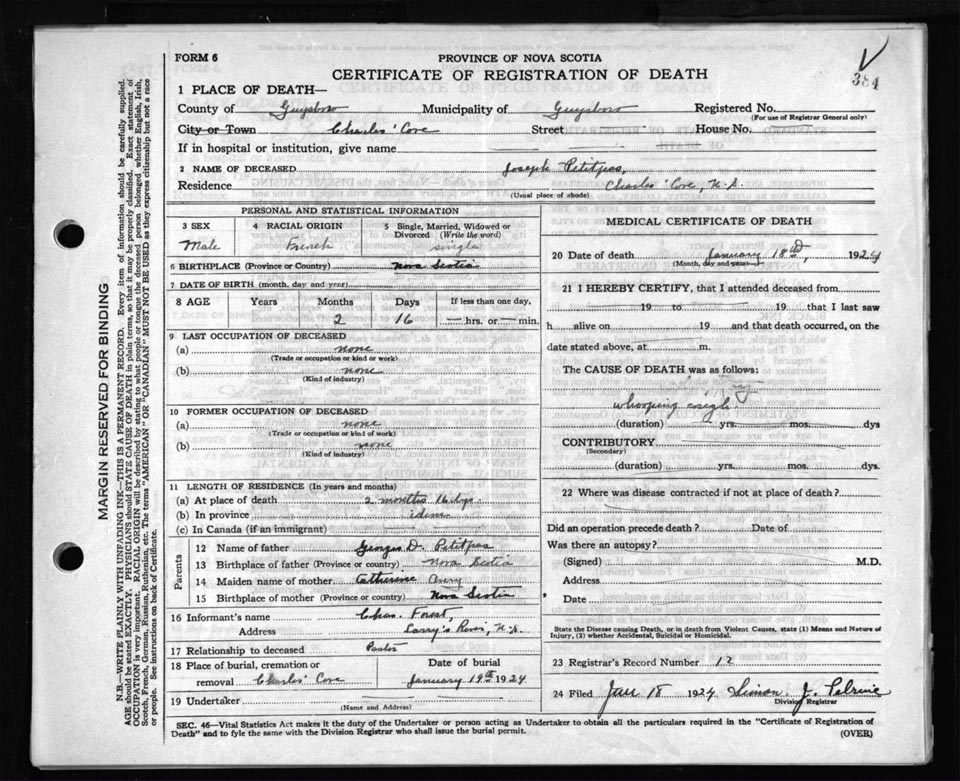 FORM 6
PROVINCE OF NOVA SCOTIA
384
CERTIFICATE OF REGISTRATION OF DEATH
1 PLACE OF DEATH—
County of Guysboro Municipality of Guysboro Registered No.
(For use of Registrar General only)
City or Town Charles' Cove Street House No.
If in hospital or institution, give name
2 NAME OF DECEASED Joseph Petitpas,
Residence Charles' Cove, N.S.
(Usual place of abode)
PERSONAL AND STATISTICAL INFORMATION
3 SEX 4 RACIAL ORIGIN 5 Single, Married, Widowed or Divorced (Write the word)
Male French single
6 BIRTHPLACE (Province or Country) Nova Scotia
7 DATE OF BIRTH (month, day and year)
8 AGE Years Months Days If less than one day,
2 16 — hrs. or — min.
9 LAST OCCUPATION OF DECEASED
(a) none
(Trade or occupation or kind or work)
(b) none
(Kind of industry)
10 FORMER OCCUPATION OF DECEASED
(a) none
(Trade or occupation or kind of work)
(b) none
(Kind of industry)
11 LENGTH OF RESIDENCE (In years and months)
(a) At place of death 2 months 16
(b) In province idem
(c) In Canada (if an immigrant)
Parents
12 Name of father George D. Petitpas
13 Birthplace of father (Province or country) Nova Scotia
14 Maiden name of mother Catherine Avery
15 Birthplace of mother (Province or country) Nova Scotia
16 Informant's name Chas. Forest,
Address Larry's River, N.S.
17 Relationship to deceased Pastor
18 Place of burial, cremation or removal Charles' Cove
Date of burial
January 19th 1924
19 Undertaker
(Name and Address)
MEDICAL CERTIFICATE OF DEATH
20 Date of death January 18th, 1924
(Month, day and year)
21 I HEREBY CERTIFY, that I attended deceased from
19 to 19 that I last saw
h alive on 19 and that death occurred, on the
date stated above, at m.
The CAUSE OF DEATH was as follows:
whooping cough
(duration) yrs. mos. dys
CONTRIBUTORY
(Secondary)
(duration) yrs. mos. dys.
22 Where was disease contracted if not at place of death?
Did an operation precede death? Date of
Was there an autopsy?
(Signed) M.D.
Address
Date
State the Disease causing Death, or in death from Violent Causes, state (1) Means and Nature of
Injury, (2) whether Accidental, Suicidal or Homicidal.
23 Registrar's Record Number 12
24 Filed Jan 18 1924 Simon J.
Division Registrar
SEC. 46—Vital Statistics Act makes it the duty of the Undertaker or person acting as Undertaker to obtain all the particulars required in the "Certificate of Registration of
Death" and to fyle the same with the Division Registrar who shall issue the burial permit.
(OVER)
MARGIN RESERVED FOR BINDING
N.B.—WRITE PLAINLY WITH UNFADING INK—THIS IS A PERMANENT RECORD. Every item of information should be carefully supplied.
AGE should be stated EXACTLY. PHYSICIANS should STATE CAUSE OF DEATH in plain terms, so that it may be properly classified. Exact statement of
OCCUPATION is very important. RACIAL ORIGIN will be described by stating to what people or tongue the deceased person belonged whether English, Irish,
Scotch, French, German, Russian, Ruthenian, etc. The terms "AMERICAN" OR "CANADIAN" MUST NOT BE USED as they express citizenship but not a race
or people. See instructions on back of Certificate.